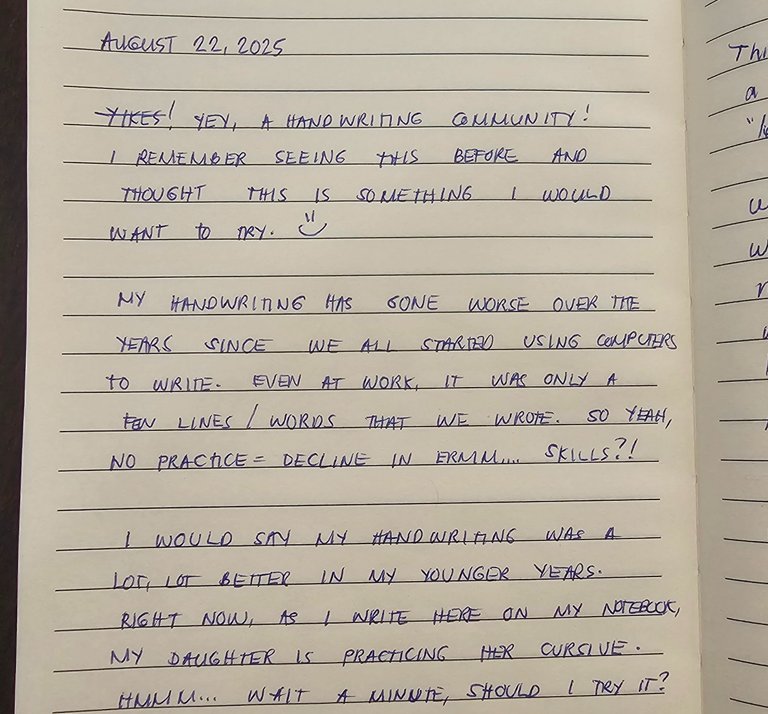 AUGUST 22, 2025
YIKES! YEY, A HANDWRITING COMMUNITY!
I REMEMBER SEEING THIS BEFORE AND
THOUGHT THIS IS SOMETHING I WOULD
WANT to TRY.
MY HANDWRITING HAS GONE WORSE OVER THE
YEARS SINCE WE ALL STARTED USING COMPUTERS
TO WRITE. EVEN AT WORK, IT WAS ONLY A
FEW LINES / WORDS THAT WE WROTE. SO YEAH,
NO PRACTICE = DECLINE IN ERMM.... SKILLS?!
I WOULD SAY MY HANDWRITING WAS A
LOT, LOT BETTER IN MY YOUNGER YEARS.
RIGHT NOW, AS I WRITE HERE ON MY NOTEBOOK,
MY DAUGHTER IS PRACTICING HER CURSIVE.
HMMM... WAIT A MINUTE, SHOULD I TRY IT?
a